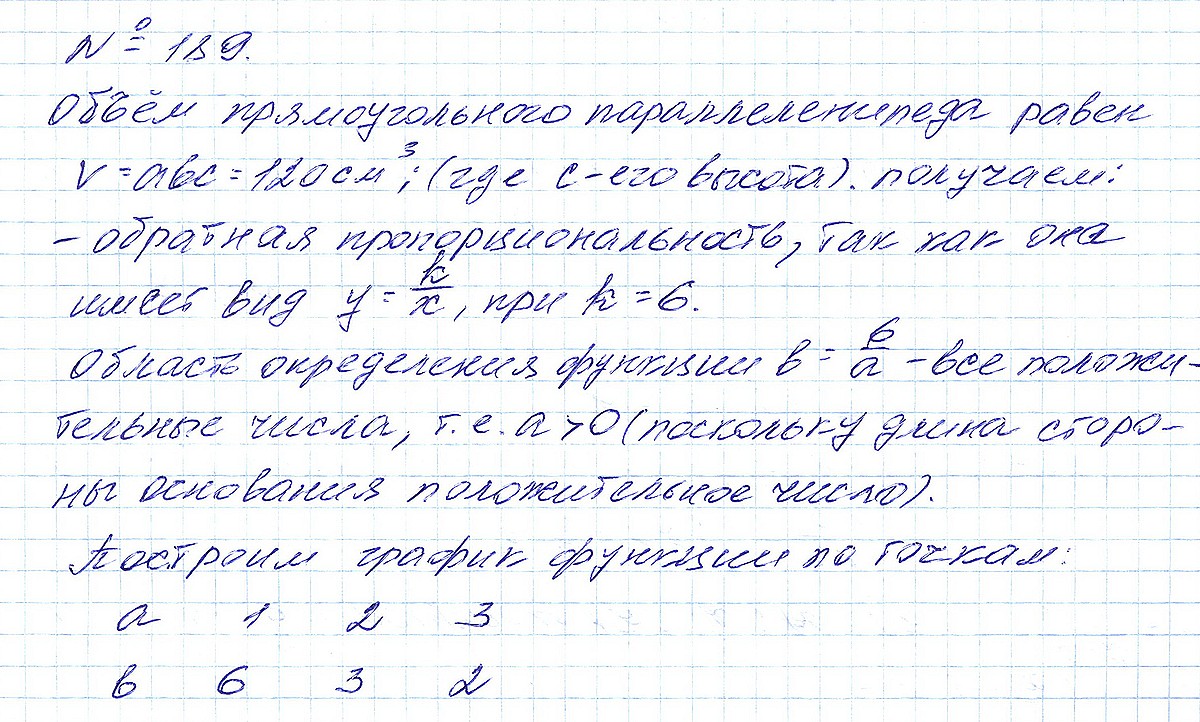 № 189.
Объём прямоугольного параллелепипеда равен
V=abc=120см³; (где c-его высота). получаем:
- обратная пропорциональность, так как она
имеет вид y = k/x, при k = 6.
Область определения функции b = 6/a - все положи-
тельные числа, т.е. a > 0 (поскольку длина сторо-
ны основания положительное число).
Построим график функции по точкам:
a 1 2 3
b 6 3 2